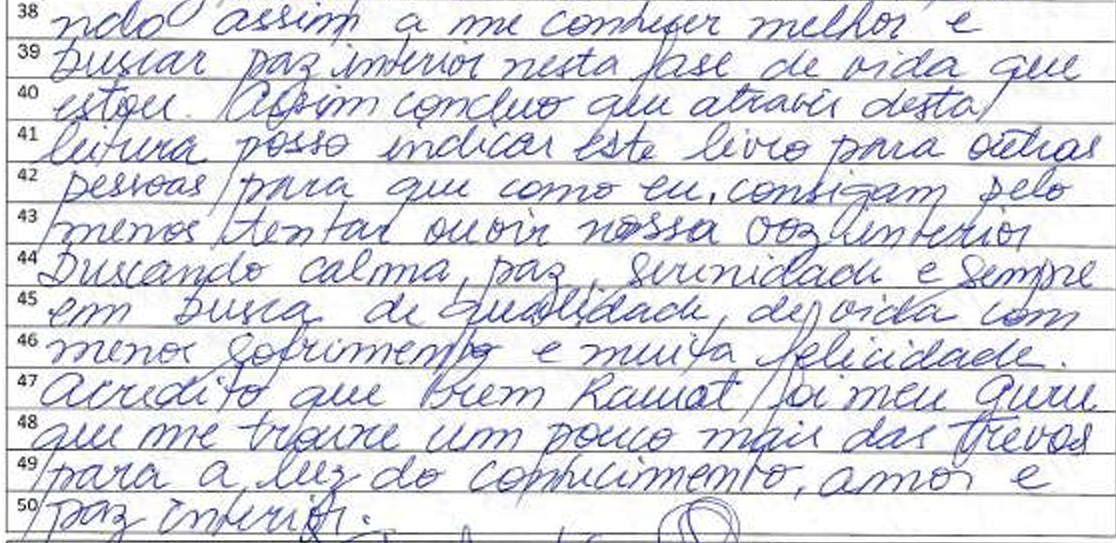 38 ndo assim a me conhecer melhor e
39 buscar paz interior nesta fase de vida que
40 estou. Assim concluo que através desta
41 leitura posso indicar este livro para outras
42 pessoas para que como eu, consigam pelo
43 menos tentar ouvir nossa voz interior
44 buscando calma, paz, serenidade e sempre
45 em busca de qualidade de vida com
46 menos sofrimento e muita felicidade.
47 Acredito que Prem Rawat foi meu guru
48 que me trouxe um pouco mais das trevas
49 para a luz do conhecimento, amor e
50 paz interior.